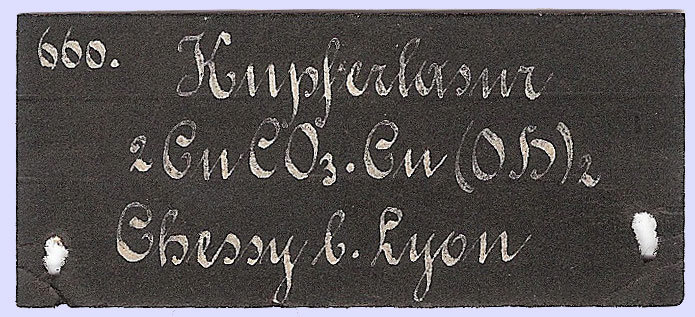 660.
Kupferlasur
2CuCO₃.Cu(OH)₂
Chessy b. Lyon